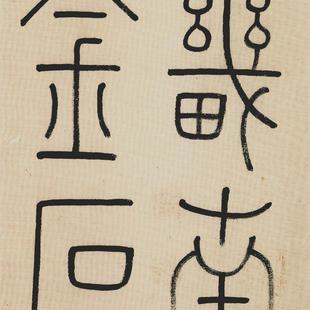 畿南
金石